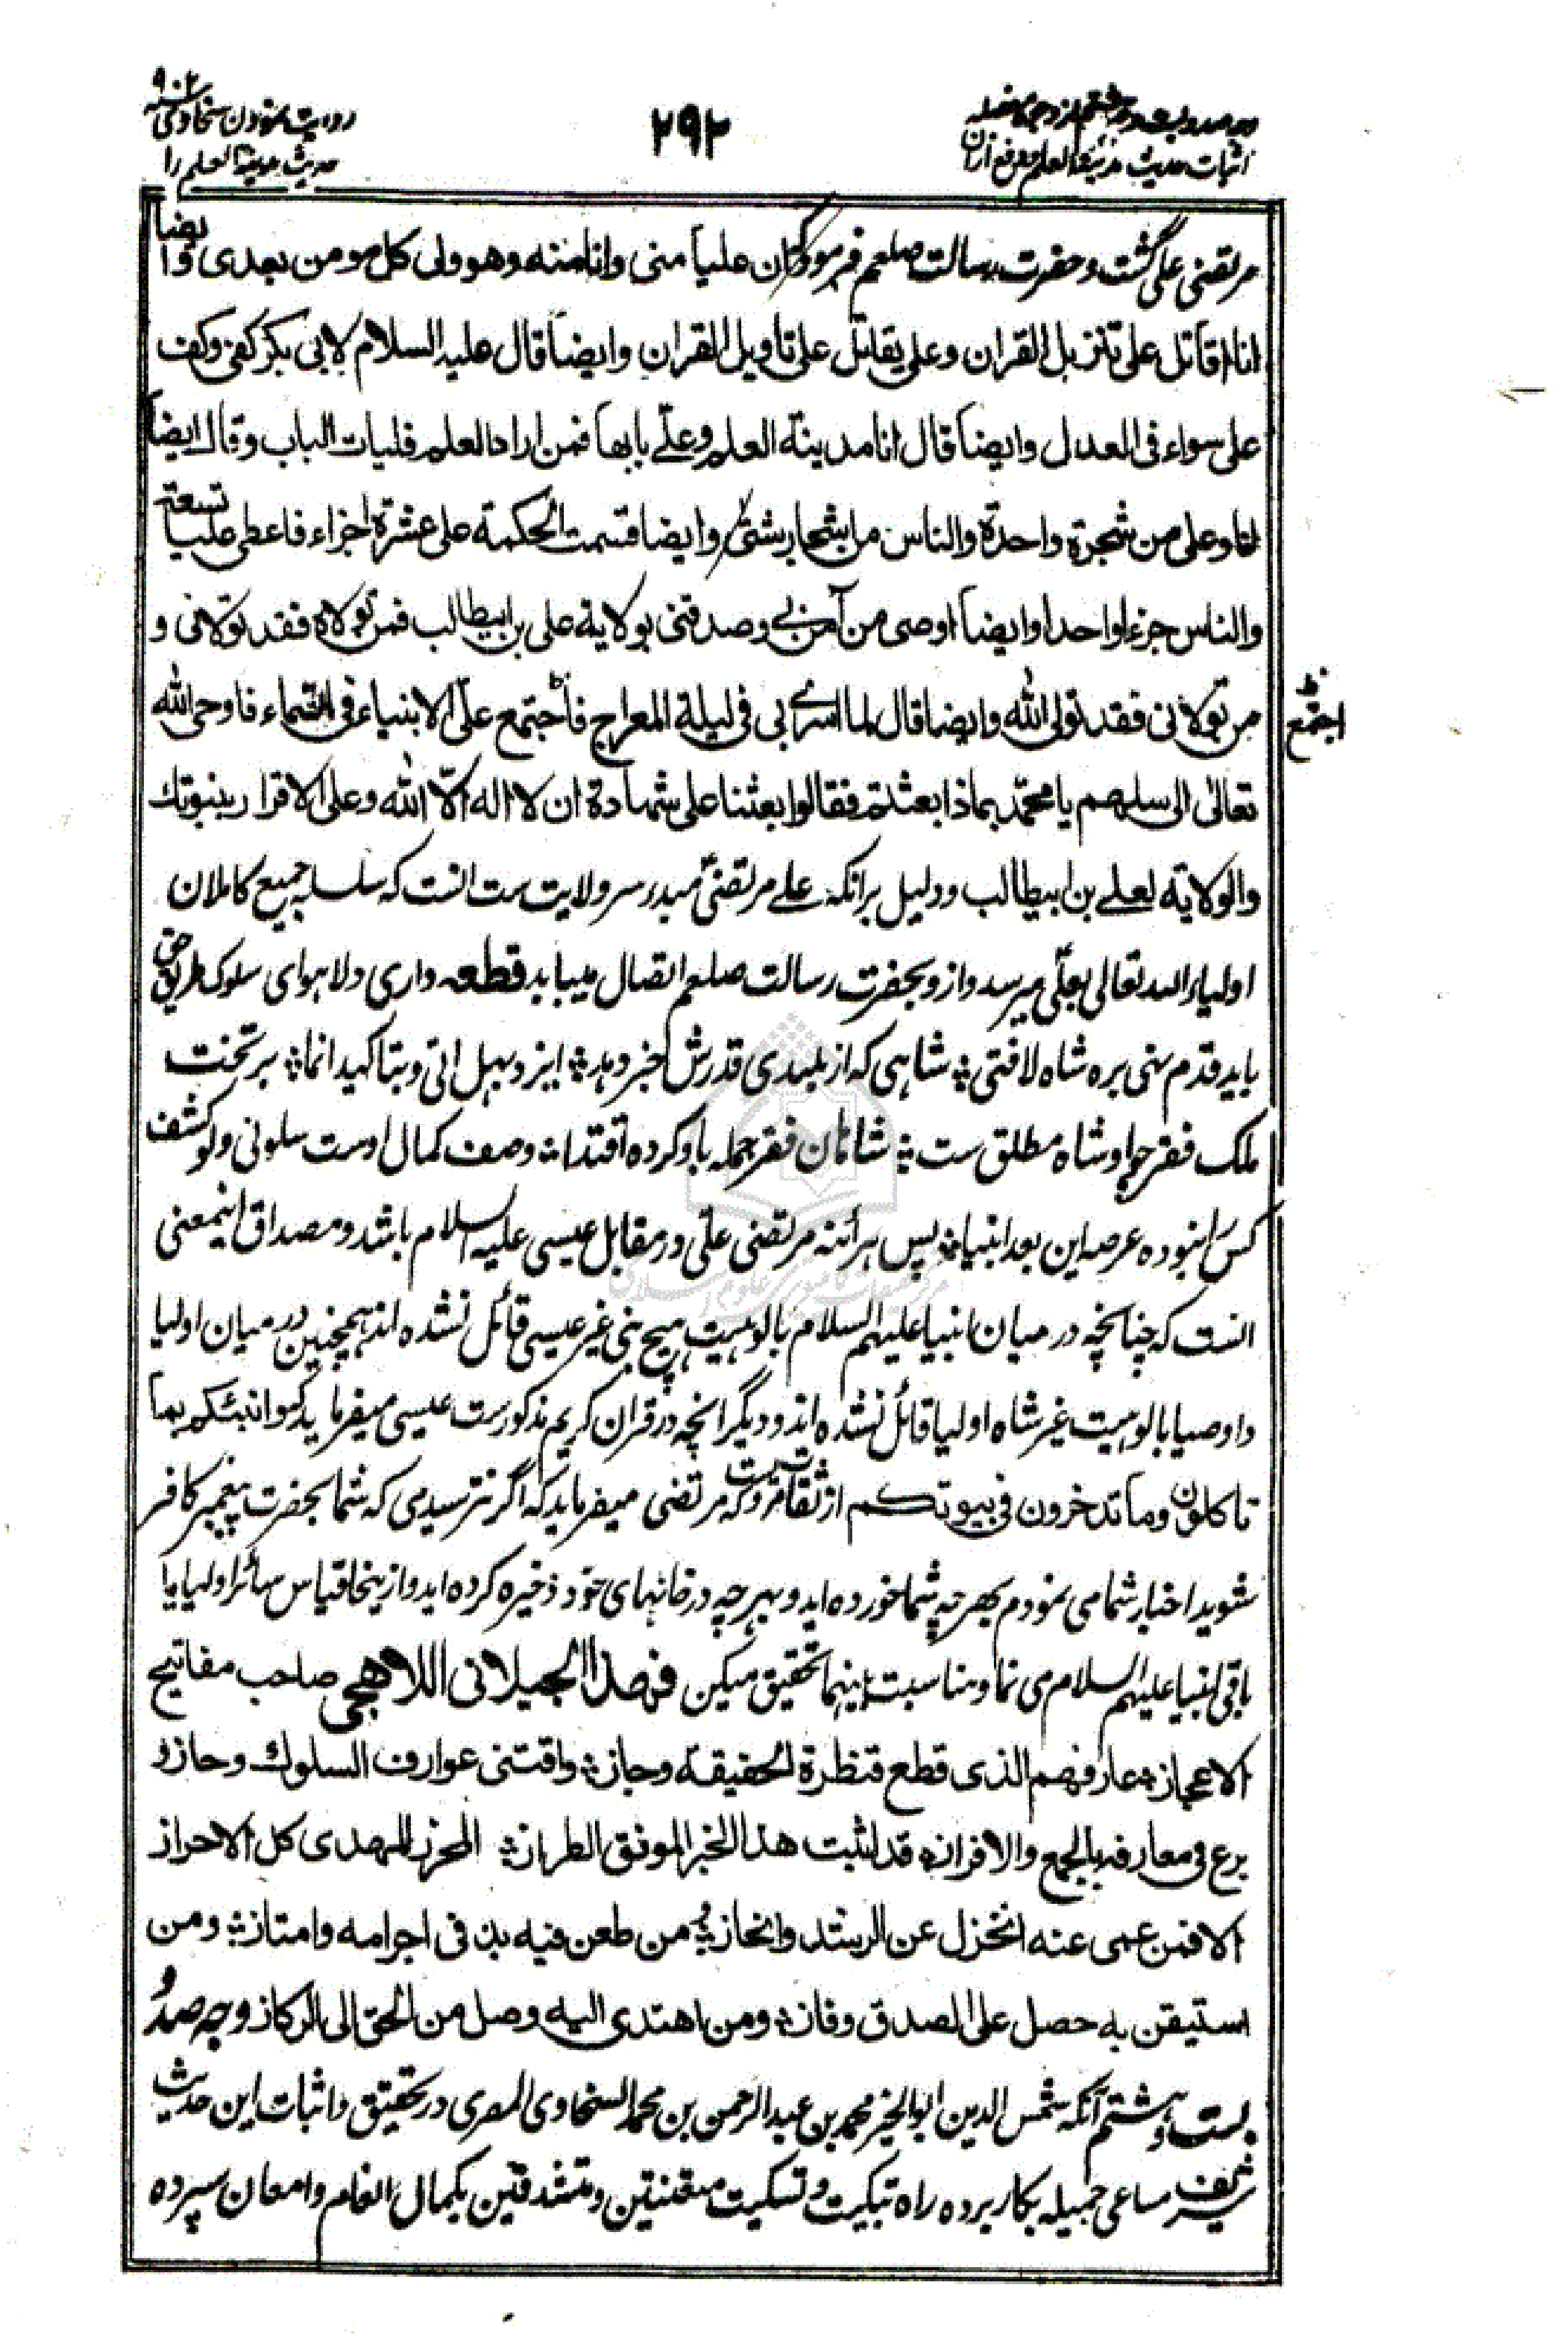 روایت نمودن سخاوی سنه ۹۰۲
حدیث مدینة العلم را
۲۹۲
وجه صد و بست و هشتم از وجوه مفصله
اثبات حدیث مدینة العلم و دفع ازان
مرتضی علی گشت و حضرت رسالت صلعم فرموده که ان علیاً منی وانا منه وهو ولی کل مومن بعدی وایضا
انا اقاتل علی تنزیل القران وعلی یقاتل علی تاویل القران وایضاً قال علیه السلام لابی بکر کفی وکف
علی سواء فی العدل وایضاً قال انا مدینة العلم وعلّی بابها فمن اراد العلم فلیات الباب وقال ایضاً
انا وعلی من شجرة واحدة والناس من اشجار شتّی وایضا قسمت الحکمة علی عشرة اجزاء فاعطی علیاً تسعة
والناس جزءا واحدا وایضاً اوصی من آمن بی وصدقنی بولایة علی بن ابیطالب فمن تولاه فقد تولانی و
من تولانی فقد تولی الله وایضا قال لما اسری بی فی لیلة المعراج فاجتمع علّی الانبیاء فی السّماء فاوحی الله
اجتمع
تعالی الی سلهم یا محمّد بماذا بعثتم فقالوا بعثنا علی شهادة ان لا اله الّا الله وعلی الاقرار بنبوتک
والولایة لعلے بن ابیطالب و دلیل برانکه علے مرتضیٰ مبدء سر ولایت ست انست که سلسله جمیع کاملان
اولیاء الله تعالی بعلّی میرسد و ازو بحضرت رسالت صلعم اتصال مییابد قطعه داری دلا هوای سلوک طریق حق
باید قدم نهی بره شاه لافتی ؛ شاهی که از بلندی قدرش خبر دهد ؛ ایزد بهل اتی و بتاکید انما ؛ بر تخت
ملک فقر چو او شاه مطلق ست ؛ شاهان فقر جمله باو کرده اقتدا ؛ وصف کمال اوست سلونی و لو کشف
کس را نبوده عرصه این بعد انبیا ؛ پس هرآئنه مرتضی علّی در مقابل عیسی علیه السلام باشد و مصداق اینمعنی
انست که چنانچه در میان انبیا علیهم السلام بالوهیت هیچ نبی غیر عیسی قائل نشده اند همچنین در میان اولیا
و اوصیا بالوهیت غیر شاه اولیا قائل نشده اند و دیگر انچه در قران کریم مذکورست عیسی میفرماید کموا انبئکم بما
تاکلون وما تدخرون فی بیوتکم از ثقات مرویست که مرتضی میفرماید که اگر نترسیدمی که شما بحضرت پیغمبر کافر
شوید اخبار شما می نمودم بهر چه شما خورده اید و بهر چه در خانهای خود ذخیره کرده اید و ازینجا قیاس سائر اولیا با
باقی انبیا علیهم السلام می نما و مناسبت اینها تحقیق میکن فهذا الجیلانی اللاهجی صاحب مفاتیح
الاعجاز ؛ عارفهم الذی قطع قنطرة الحقیقة وجاز ؛ واقتنی عوارف السلوک وحاز و
برع فی معارفه بالجمع والافراز ؛ قد اثبت هذا الخبر المونق الطراز ؛ المحرز للهدی کل الاحراز
الا فمن عمی عنه انخزل عن الرشد وانحاز ؛ ومن طعن فیه بذ فی اجرامه وامتاز ؛ ومن
استیقن به حصل علی الصدق وفاز ؛ ومن اهتدی الیه وصل من الحق الی الرکاز وجه صد و
بست و هشتم آنکه شمس الدین ابو الخیر محمد بن عبد الرحمن بن محمد السخاوی المصری در تحقیق و اثبات این حدیث
شریف مساعی جمیله بکار برده راه تبکیت و تسکیت متعنتین و متشدقین بکمال انعام و امعان سپرده